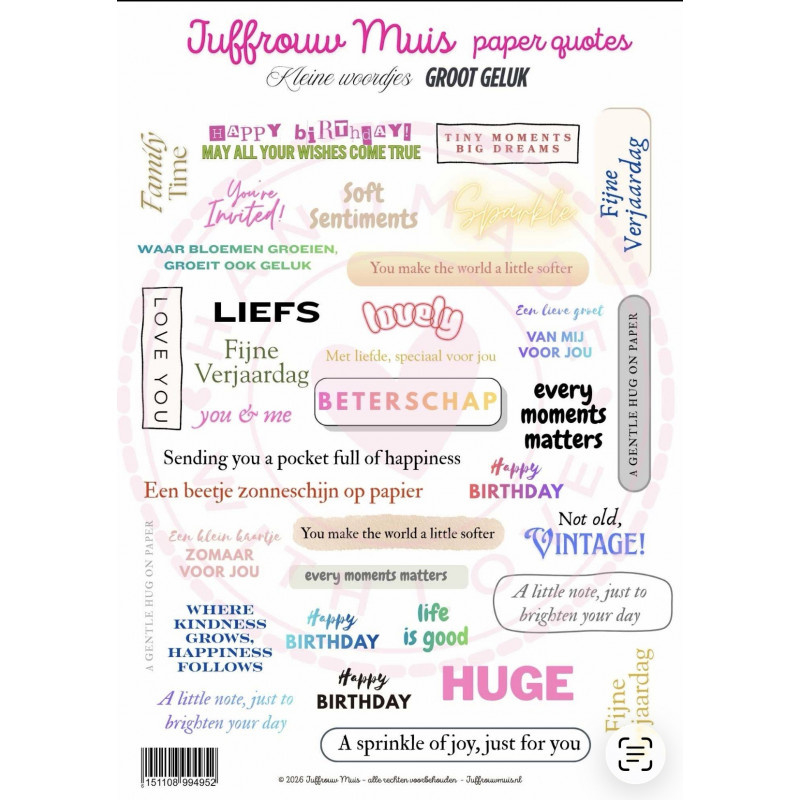 Juffrouw Muis paper quotes
Kleine woordjes GROOT GELUK
Family
Time
HAPPY biRThdAY!
MAY ALL YOUR WISHES COME TRUE
TINY MOMENTS
BIG DREAMS
Fijne
Verjaardag
You're
Invited!
Soft
Sentiments
Sparkle
WAAR BLOEMEN GROEIEN,
GROEIT OOK GELUK
You make the world a little softer
LOVE YOU
LIEFS
lovely
Een lieve groet
VAN MIJ
VOOR JOU
A GENTLE HUG ON PAPER
Fijne
Verjaardag
Met liefde, speciaal voor jou
BETERSCHAP
you & me
every
moments
matters
Sending you a pocket full of happiness
Happy
BIRTHDAY
Een beetje zonneschijn op papier
Not old,
VINTAGE!
A GENTLE HUG ON PAPER
Een klein kaartje
ZOMAAR
VOOR JOU
You make the world a little softer
every moments matters
A little note, just to
brighten your day
WHERE
KINDNESS
GROWS,
HAPPINESS
FOLLOWS
Happy
BIRTHDAY
life
is good
Happy
BIRTHDAY
HUGE
Fijne
jaardag
A little note, just to
brighten your day
A sprinkle of joy, just for you
151108 994952
© 2026 Juffrouw Muis - alle rechten voorbehouden - Juffrouwmuis.nl